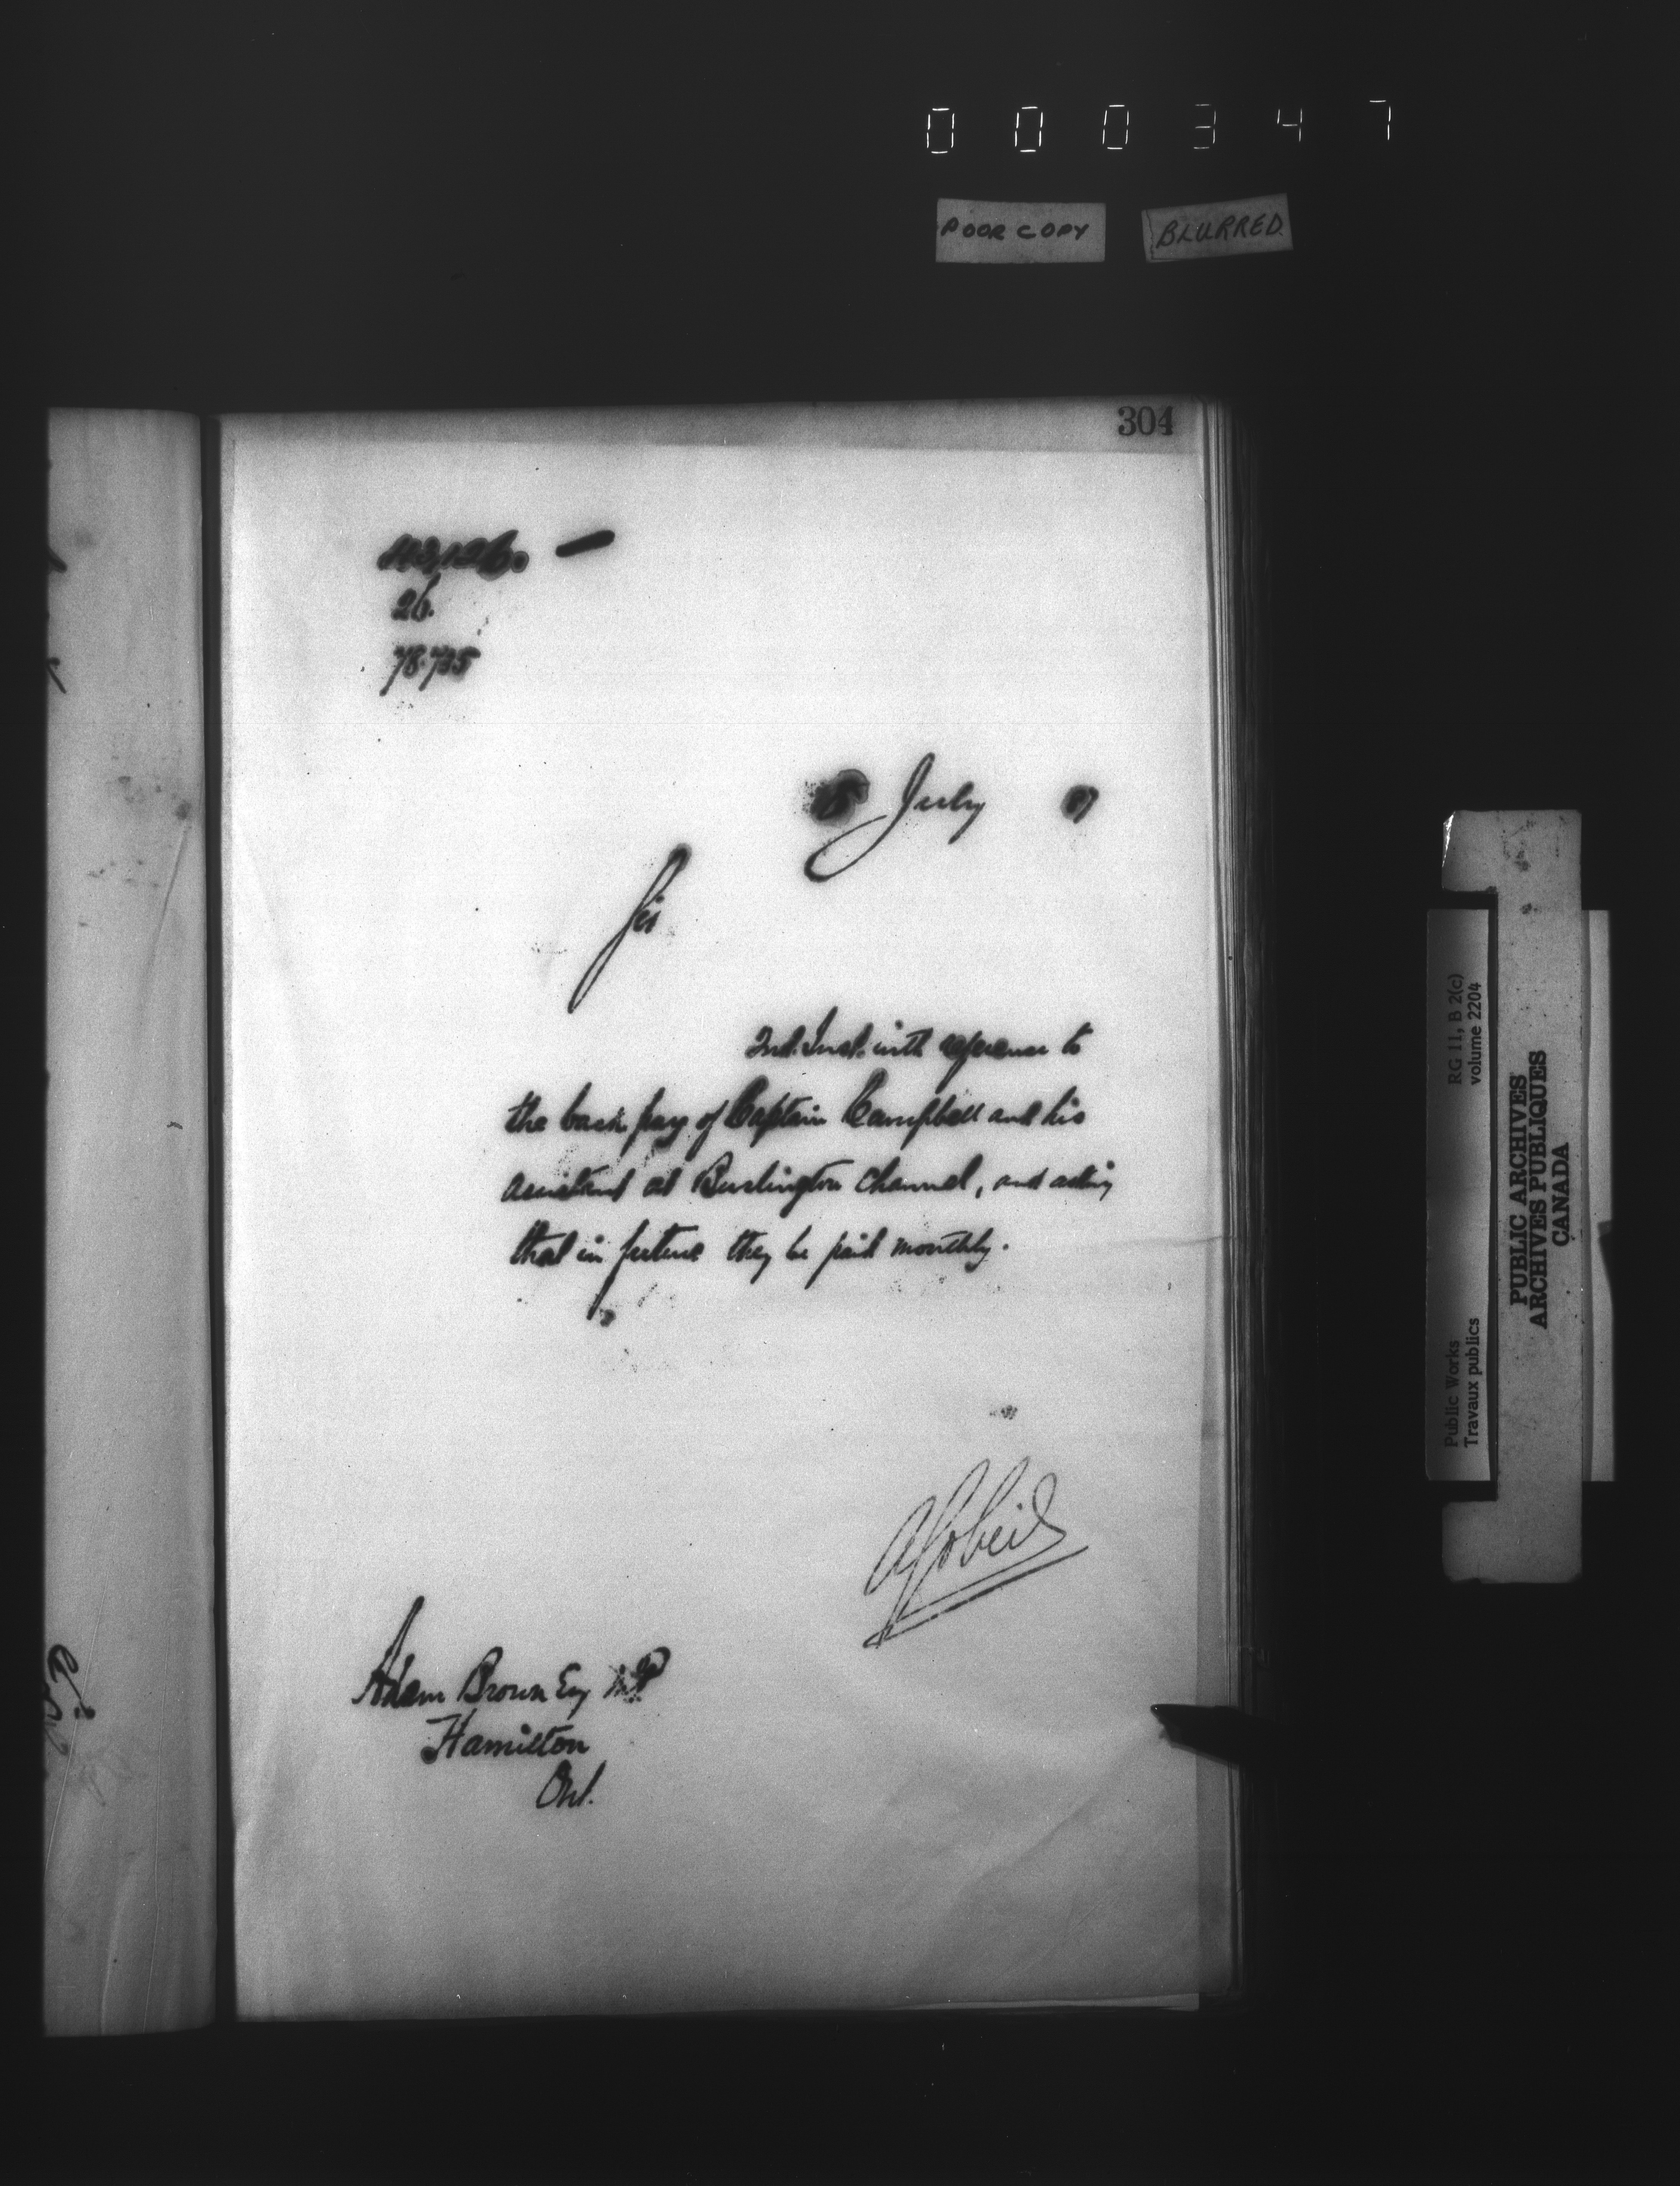 000347
POOR COPY BLURRED
304
26.
78.735
July
Sir
2nd. Inst. with reference to
the back pay of Captain Campbell and his
assistant at Burlington Channel, and asking
that in future they be paid monthly.
AGobeil
Adam Brown Esq MP
Hamilton
Ont.
Public Works RG 11, B 2(c)
Travaux publics volume 2204
PUBLIC ARCHIVES
ARCHIVES PUBLIQUES
CANADA